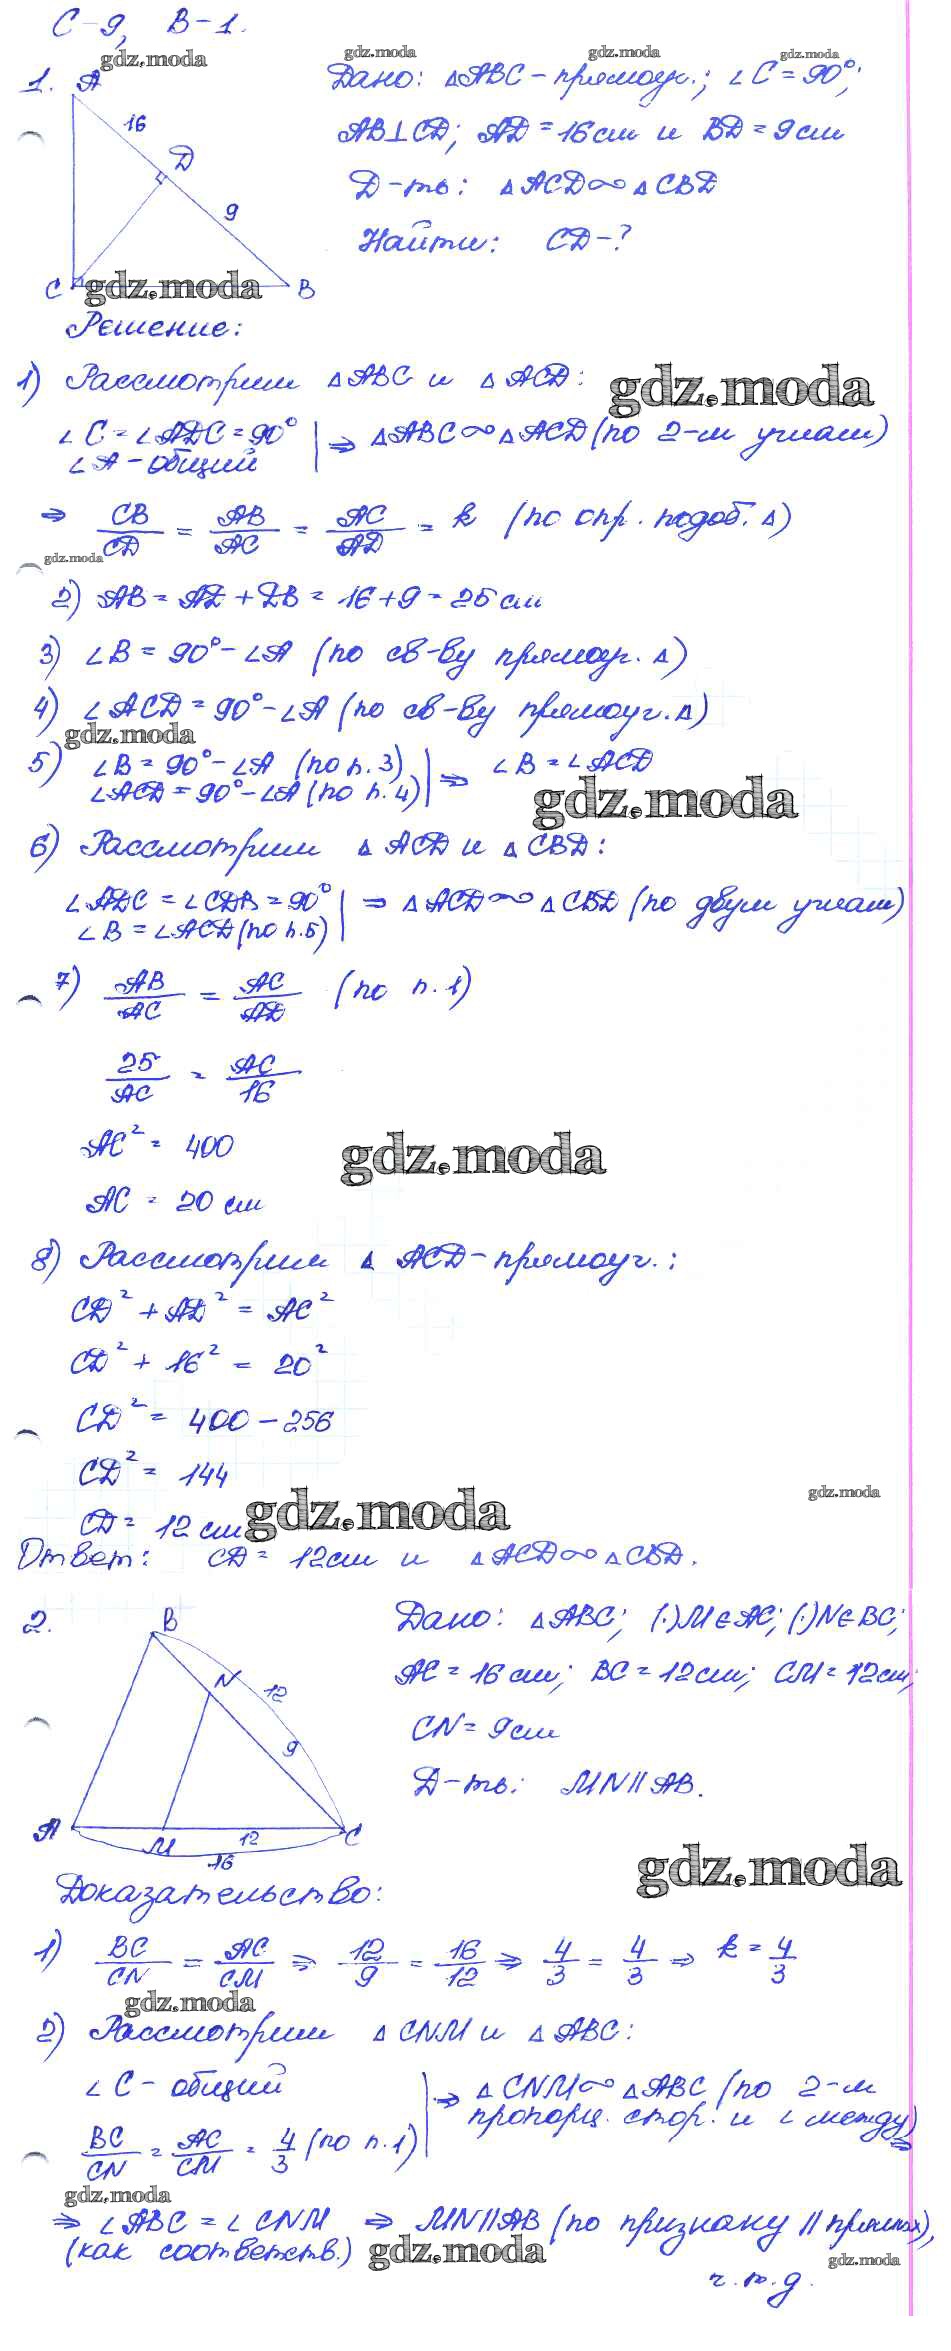 С-9, В-1.
gdz.moda gdz.moda gdz.moda gdz.moda
1. A 16 D 9 C B
Дано: △ABC - прямоуг.; ∠C = 90°;
AB⊥CD; AD = 16 см и BD = 9 см
Д-ть: △ACD∞△CBD
Найти: CD-?
gdz.moda
Решение:
1) Рассмотрим △ABC и △ACD:
gdz.moda
∠C = ∠ADC = 90° | ⇒ △ABC∞△ACD (по 2-м углам)
∠A - общий
⇒ CB/CD = AB/AC = AC/AD = k (по опр. подоб. △)
gdz.moda
2) AB = AD + DB = 16 + 9 = 25 см
3) ∠B = 90° - ∠A (по св-ву прямоуг. △)
4) ∠ACD = 90° - ∠A (по св-ву прямоуг. △)
gdz.moda
5) ∠B = 90° - ∠A (по п. 3) | ⇒ ∠B = ∠ACD
∠ACD = 90° - ∠A (по п. 4)
gdz.moda
6) Рассмотрим △ ACD и △ CBD:
∠ADC = ∠CDB = 90° | ⇒ △ACD∞△CBD (по двум углам)
∠B = ∠ACD (по п.5)
7) AB/AC = AC/AD (по п. 1)
25/AC = AC/16
AC² = 400
gdz.moda
AC = 20 см
8) Рассмотрим △ ACD - прямоуг.:
CD² + AD² = AC²
CD² + 16² = 20²
CD² = 400 - 256
CD² = 144
gdz.moda gdz.moda
CD = 12 см
Ответ: CD = 12см и △ACD∞△CBD.
2. B N 12 9 A M 12 C 16
Дано: △ABC; (·)M∈AC; (·)N∈BC;
AC = 16 см; BC = 12 см; CM = 12 см;
CN = 9 см
Д-ть: MN∥AB.
gdz.moda
Доказательство:
1) BC/CN = AC/CM ⇒ 12/9 = 16/12 ⇒ 4/3 = 4/3 ⇒ k = 4/3
gdz.moda
2) Рассмотрим △CNM и △ABC:
∠C - общий | ⇒ △CNM∞△ABC (по 2-м
BC/CN = AC/CM = 4/3 (по п.1) | пропорц. стор. и ∠ между) ⇒
gdz.moda
⇒ ∠ABC = ∠CNM ⇒ MN∥AB (по признаку ∥ прямых),
(как соответств.)
gdz.moda gdz.moda
ч.т.д.